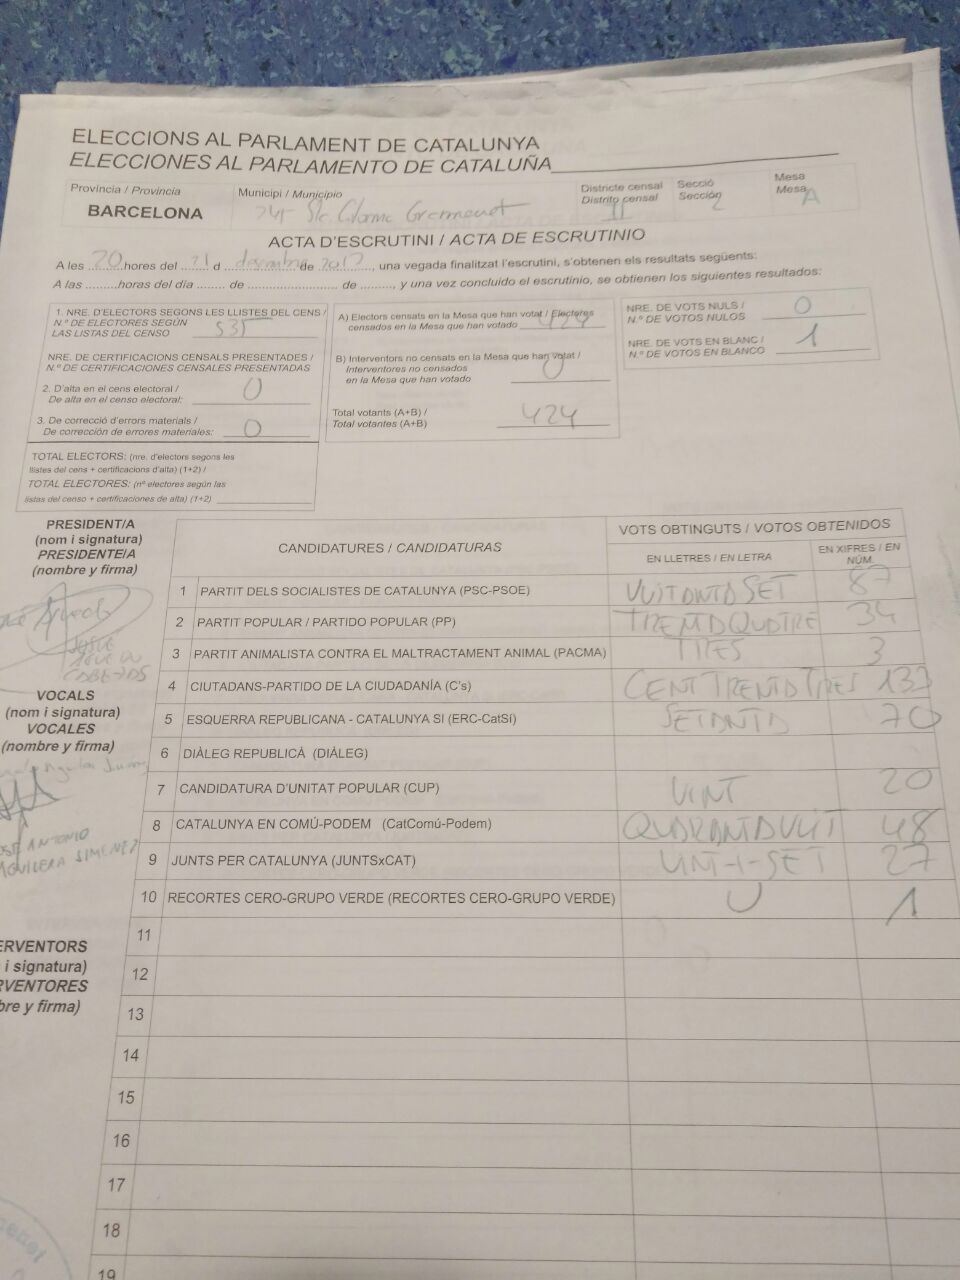 ELECCIONS AL PARLAMENT DE CATALUNYA
ELECCIONES AL PARLAMENTO DE CATALUÑA
Província / Provincia
BARCELONA
Municipi / Municipio
Districte censal
Distrito censal
II
Secció
Sección
2
Mesa
Mesa
A
ACTA D'ESCRUTINI / ACTA DE ESCRUTINIO
A les 20 hores del 21 d desembre de 2017, una vegada finalitzat l'escrutini, s'obtenen els resultats següents:
A las .........horas del día ....... de ............................ de ........., y una vez concluido el escrutinio, se obtienen los siguientes resultados:
1. NRE. D'ELECTORS SEGONS LES LLISTES DEL CENS /
N.º DE ELECTORES SEGÚN
LAS LISTAS DEL CENSO 535
NRE. DE CERTIFICACIONS CENSALS PRESENTADES /
N.º DE CERTIFICACIONES CENSALES PRESENTADAS
2. D'alta en el cens electoral /
De alta en el censo electoral: 0
3. De correcció d'errors materials /
De corrección de errores materiales: 0
TOTAL ELECTORS: (nre. d'electors segons les
llistes del cens + certificacions d'alta) (1+2) /
TOTAL ELECTORES: (nº electores según las
listas del censo + certificaciones de alta) (1+2)
A) Electors censats en la Mesa que han votat / Electores
censados en la Mesa que han votado 424
B) Interventors no censats en la Mesa que han votat /
Interventores no censados
en la Mesa que han votado 0
Total votants (A+B) /
Total votantes (A+B) 424
NRE. DE VOTS NULS /
N.º DE VOTOS NULOS 0
NRE. DE VOTS EN BLANC /
N.º DE VOTOS EN BLANCO 1
PRESIDENT/A
(nom i signatura)
PRESIDENTE/A
(nombre y firma)
VOCALS
(nom i signatura)
VOCALES
(nombre y firma)
ANTONIO
AGUILERA SIMENEZ
ERVENTORS
i signatura)
RVENTORES
bre y firma)
CANDIDATURES / CANDIDATURAS
VOTS OBTINGUTS / VOTOS OBTENIDOS
EN LLETRES / EN LETRA
EN XIFRES / EN
NÚM.
1 PARTIT DELS SOCIALISTES DE CATALUNYA (PSC-PSOE) VUITANTA SET 87
2 PARTIT POPULAR / PARTIDO POPULAR (PP) TRENTA QUATRE 34
3 PARTIT ANIMALISTA CONTRA EL MALTRACTAMENT ANIMAL (PACMA) TRES 3
4 CIUTADANS-PARTIDO DE LA CIUDADANÍA (C's) CENT TRENTA TRES 133
5 ESQUERRA REPUBLICANA - CATALUNYA SI (ERC-CatSí) SETANTA 70
6 DIÀLEG REPUBLICÀ (DIÀLEG)
7 CANDIDATURA D'UNITAT POPULAR (CUP) VINT 20
8 CATALUNYA EN COMÚ-PODEM (CatComú-Podem) QUARANTA VUIT 48
9 JUNTS PER CATALUNYA (JUNTSxCAT) VINT-I-SET 27
10 RECORTES CERO-GRUPO VERDE (RECORTES CERO-GRUPO VERDE) U 1
11
12
13
14
15
16
17
18
19